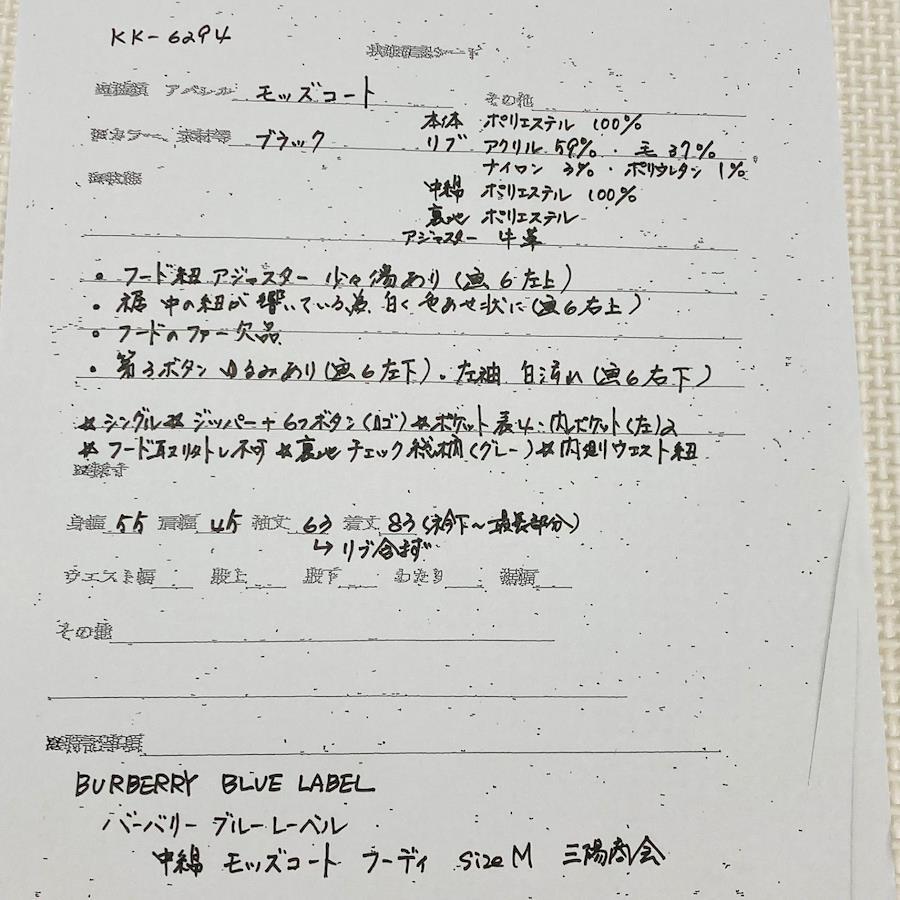 KK-6294
状態確認シート
アパレル モッズコート その他
カラー、素材等 ブラック
本体 ポリエステル 100%
リブ アクリル 59%・毛 37%
ナイロン 3%・ポリウレタン 1%
状態
中綿 ポリエステル 100%
裏地 ポリエステル
アジャスター 牛革
・フード紐アジャスター 少々傷あり(画6左上)
・裾 中の紐が響いている為 白く色あせ状に(画6右上)
・フードのファー欠品
・第3ボタン ゆるみあり(画6左下)・左袖 白汚れ(画6右下)
*シングル*ジッパー+6つボタン(ロゴ)*ポケット表4・内ポケット(左)2
*フード取り外し不可*裏地チェック総柄(グレー)*内側ウエスト紐
採寸
身幅 55 肩幅 45 袖丈 63 着丈 83(衿下〜最長部分)
↳リブ含まず
ウエスト幅 股上 股下 わたり 裾幅
その他
特記事項
BURBERRY BLUE LABEL
バーバリー ブルーレーベル
中綿 モッズコート フーディ size M 三陽商会